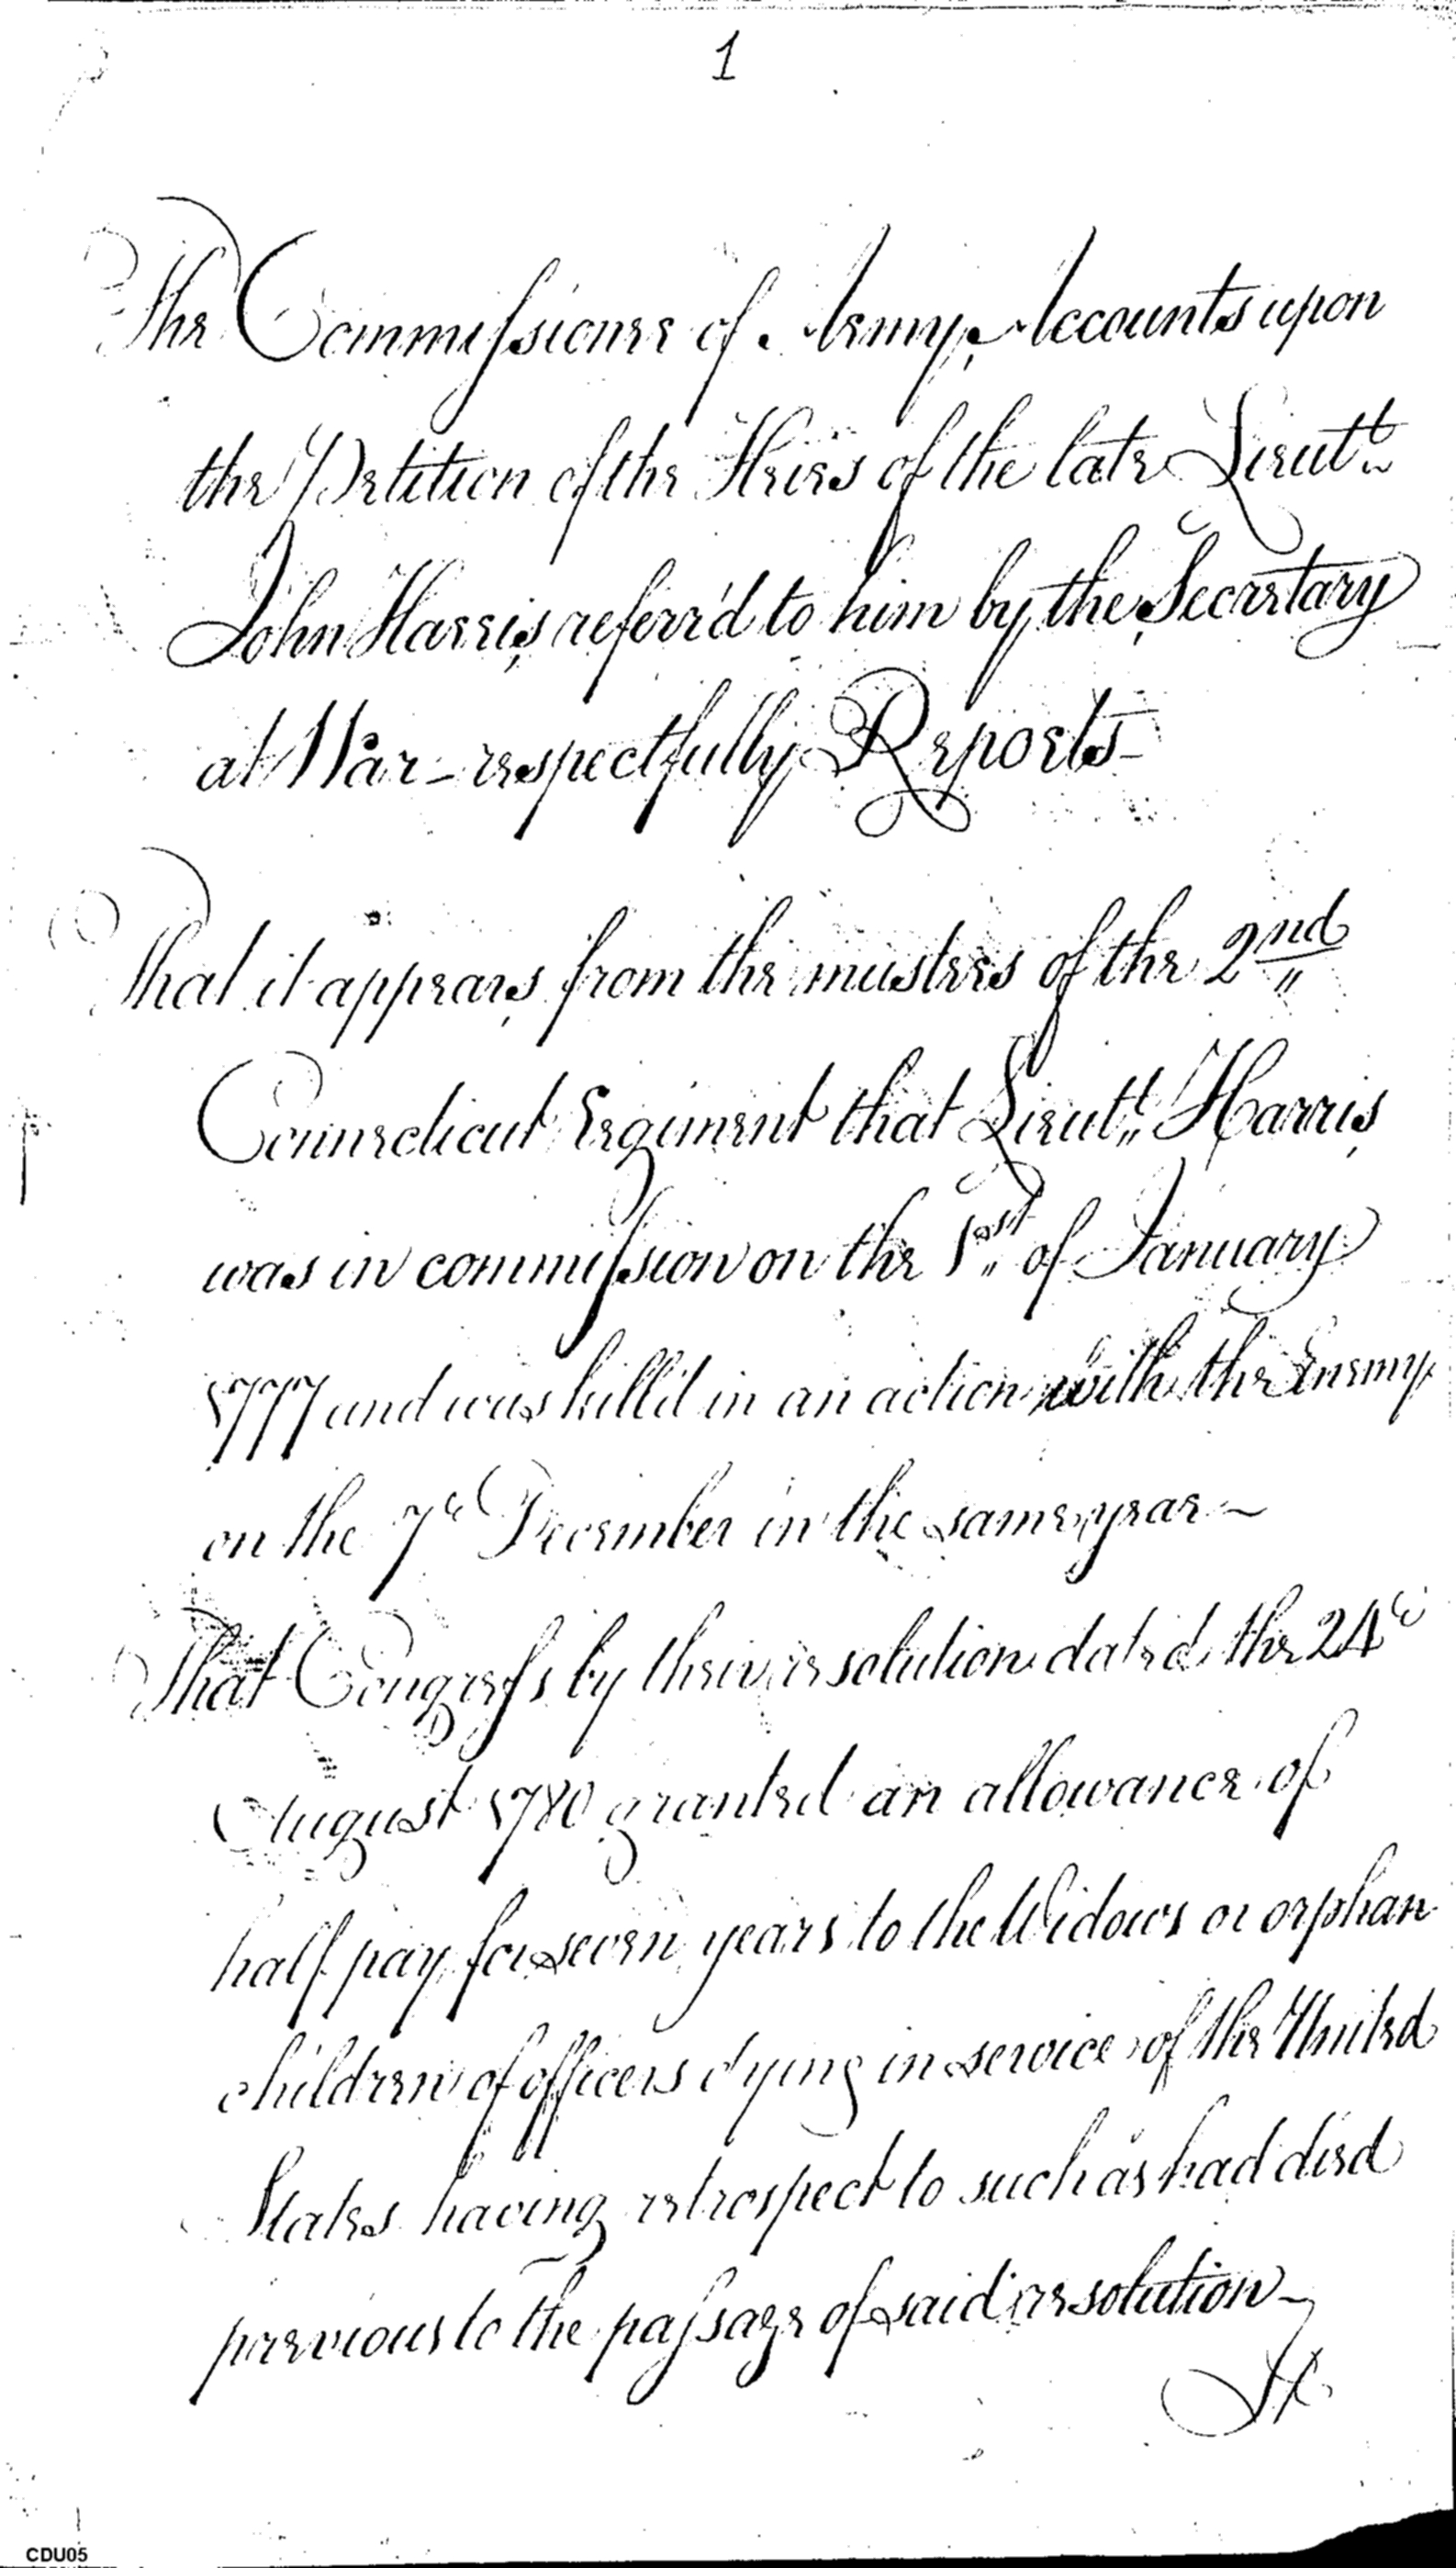 1
The Commissioner of Army Accounts upon
the Petition of the Heirs of the late Lieutt.
John Harris, referr'd to him by the Secretary
at War - respectfully Reports -
That it appears from the musters of the 2nd
Connecticut Regiment that Lieutt. Harris,
was in commission on the 1st of January
1777 and was kill'd in an action with the Enemy
on the 7th December in the same year -
That Congress by their resolution dated the 24th
August 1780 granted an allowance of
half pay for seven years to the Widows or orphan
children of officers dying in service of the United
States having retrospect to such as had died
previous to the passage of said resolution -
CDU05